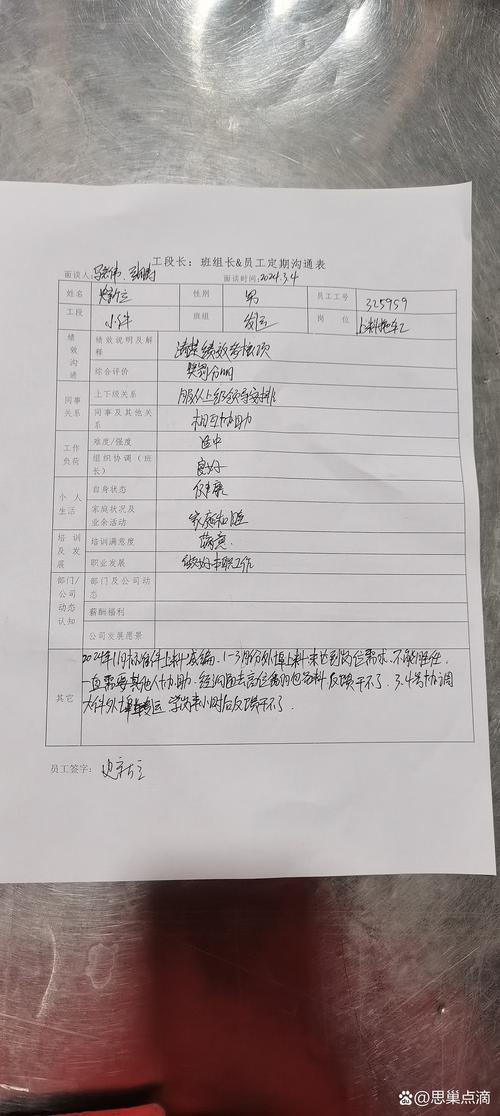 工段长:班组长&员工定期沟通表
面谈人: 面谈时间:2024.3.4
姓名 性别 男 员工工号 325959
工段 小件 班组 发运 岗位 上料拖车工
绩效沟通 绩效说明及解释 清楚绩效考核项
综合评价 奖罚分明
同事关系 上下级关系 服从上级领导安排
同事及其他关系 相互协助
工作负荷 难度/强度 适中
组织协调(班长) 良好
个人生活 自身状态 健康
家庭状况及业余活动 家庭和睦
培训及发展 培训满意度 满意.
职业发展 做好本职工作
部门/公司动态认知 部门及公司动态
薪酬福利
公司发展愿景
其它 2024年1月标准件上料 1-3月份外埠上料未达到岗位需求.不能胜任.
一直需要其他人协助.经沟通去 反馈干不了.3.4号协调
大件外埠 运 学 半小时后反馈干不了.
员工签字:
思巢点滴